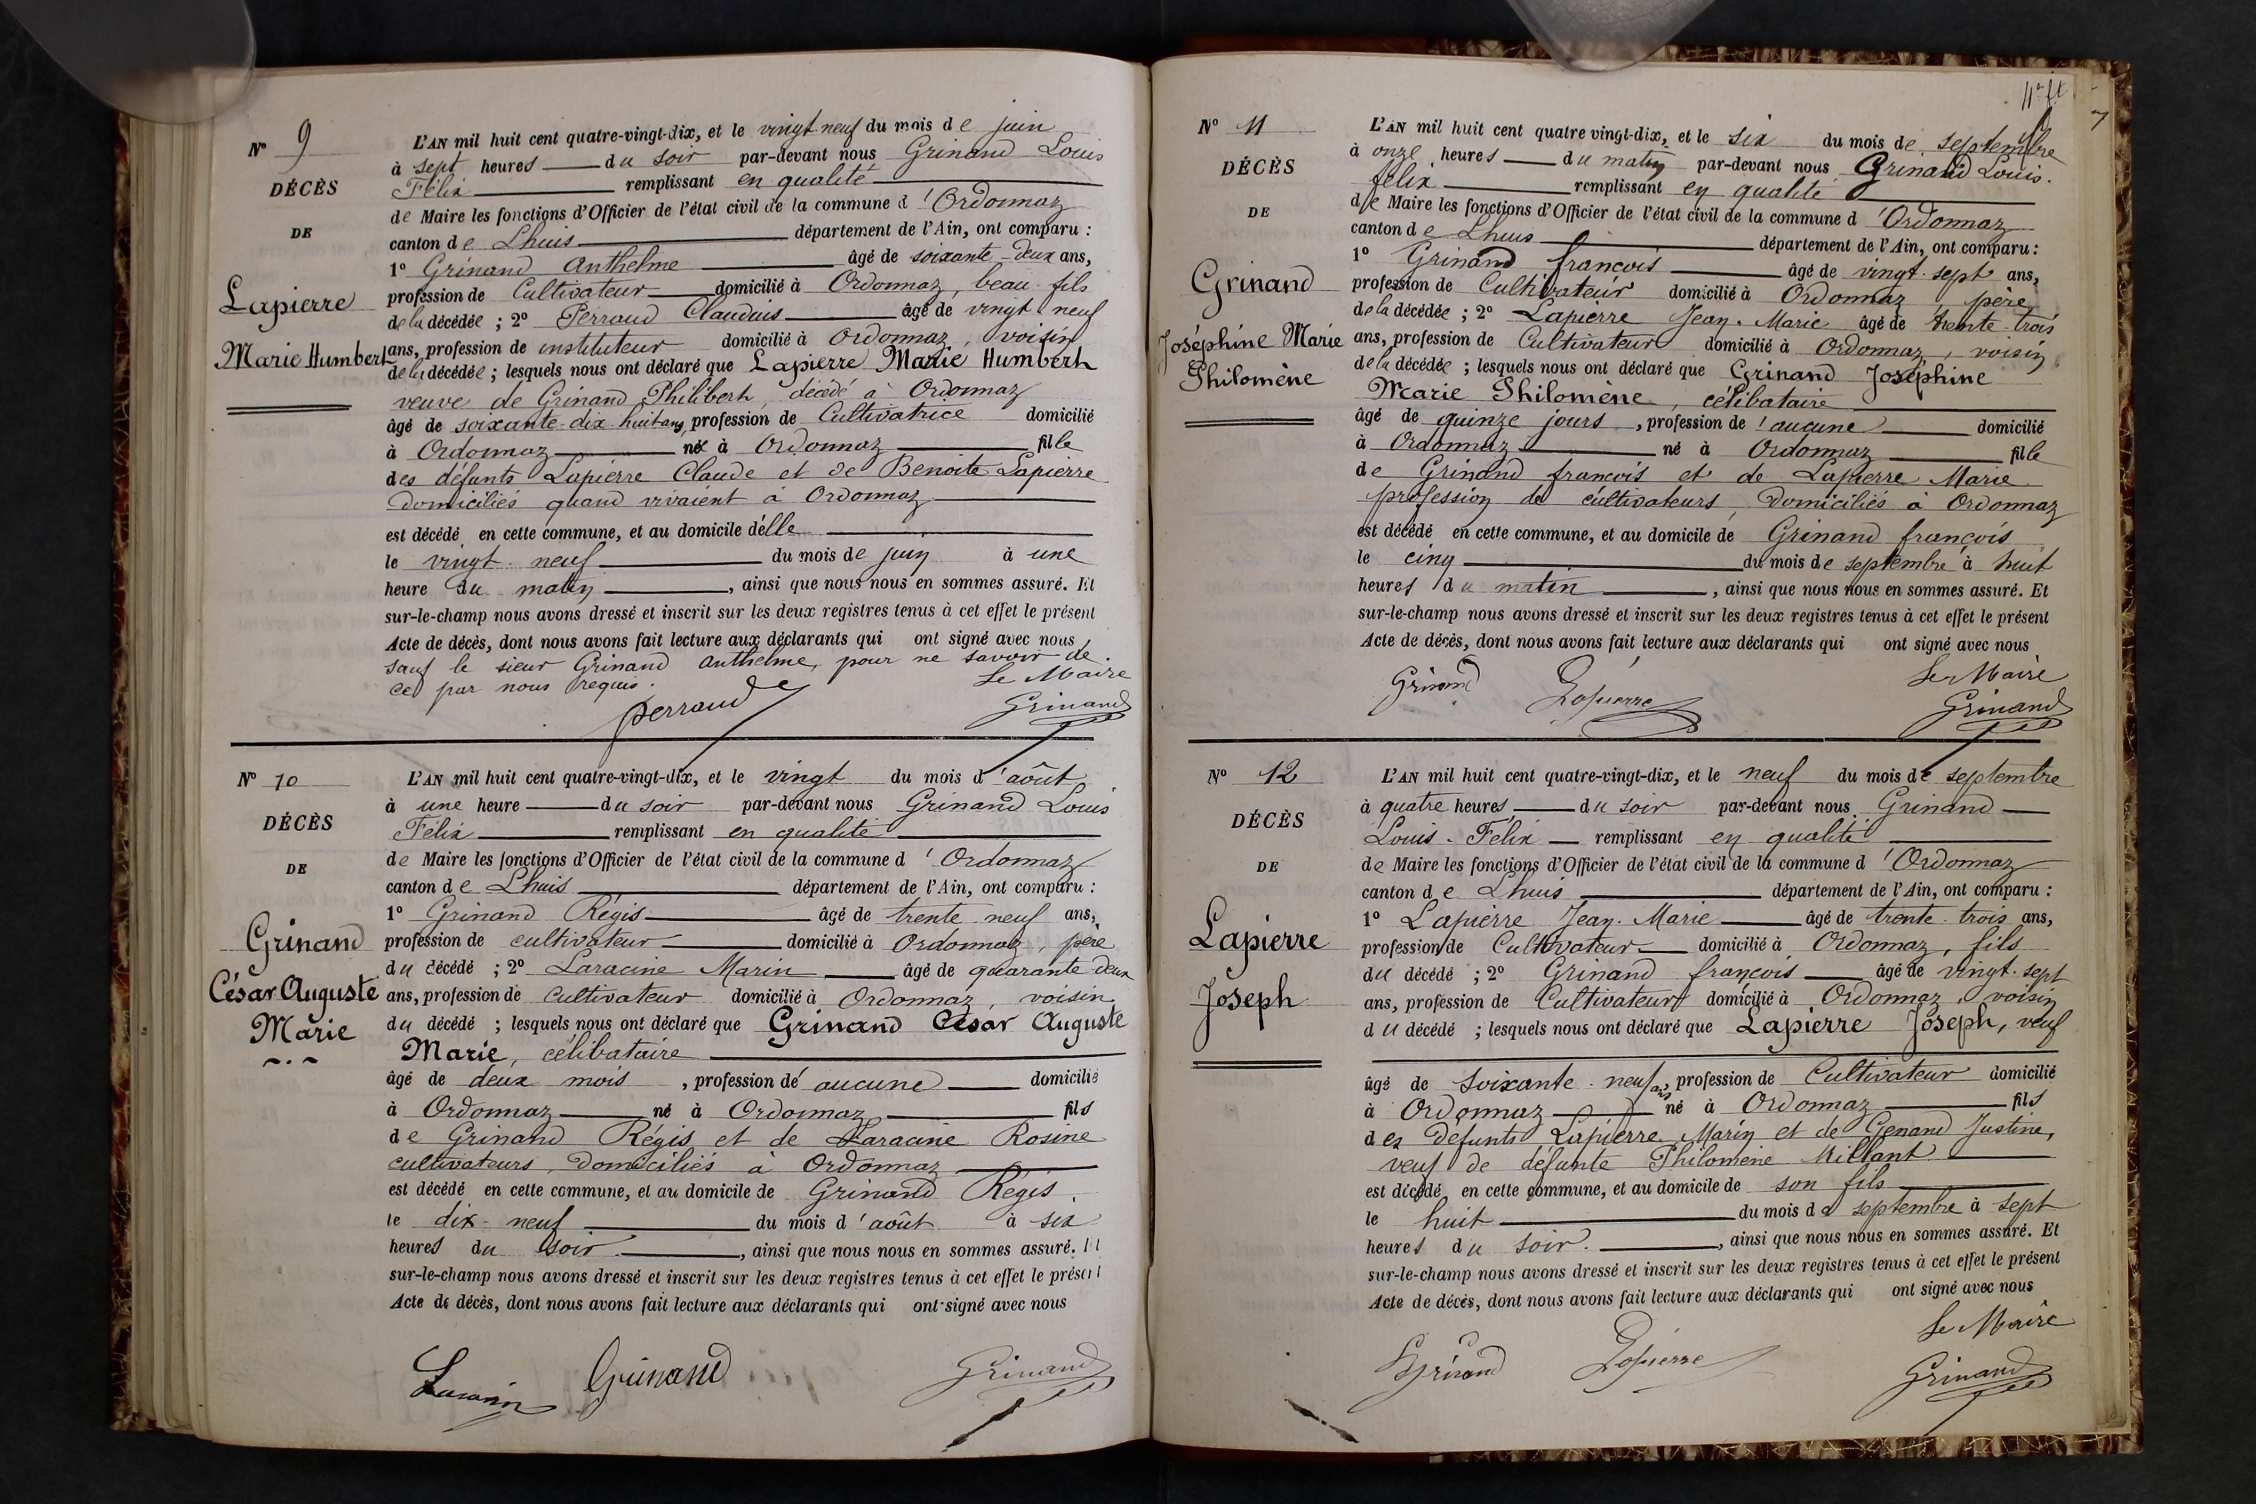 N° 9
DÉCÈS
DE
Lapierre
Marie Humbert
L'AN mil huit cent quatre-vingt-dix, et le vingt neuf du mois de juin
à sept heures du soir par-devant nous Grinand Louis
Félix remplissant en qualité
de Maire les fonctions d'Officier de l'état civil de la commune d'Ordonnaz
canton de Lhuis département de l'Ain, ont comparu :
1° Grinand Anthelme âgé de soixante-deux ans,
profession de Cultivateur domicilié à Ordonnaz, beau-fils
de la décédée ; 2° Perraud Claudius âgé de vingt neuf
ans, profession de instituteur domicilié à Ordonnaz, voisin
de la décédée ; lesquels nous ont déclaré que Lapierre Marie Humbert
veuve de Grinand Philibert, décédé à Ordonnaz
âgé de soixante-dix-huit ans, profession de Cultivatrice domicilié
à Ordonnaz née à Ordonnaz fille
des défunts Lapierre Claude et de Benoite Lapierre
domiciliés quand vivaient à Ordonnaz
est décédé en cette commune, et au domicile d'elle
le vingt-neuf du mois de juin à une
heure du matin, ainsi que nous nous en sommes assuré. Et
sur-le-champ nous avons dressé et inscrit sur les deux registres tenus à cet effet le présent
Acte de décès, dont nous avons fait lecture aux déclarants qui ont signé avec nous
sauf le sieur Grinand Anthelme, pour ne savoir de
ce par nous requis.
Le Maire
Perraud
Grinand
N° 10
DÉCÈS
DE
Grinand
César Auguste
Marie
L'AN mil huit cent quatre-vingt-dix, et le vingt du mois d'août
à une heure du soir par-devant nous Grinand Louis
Félix remplissant en qualité
de Maire les fonctions d'Officier de l'état civil de la commune d'Ordonnaz
canton de Lhuis département de l'Ain, ont comparu :
1° Grinand Régis âgé de trente neuf ans,
profession de cultivateur domicilié à Ordonnaz, père
du décédé ; 2° Laracine Marin âgé de quarante deux
ans, profession de cultivateur domicilié à Ordonnaz, voisin
du décédé ; lesquels nous ont déclaré que Grinand César Auguste
Marie, célibataire
âgé de deux mois, profession d'aucune domicilié
à Ordonnaz né à Ordonnaz fils
de Grinand Régis et de Laracine Rosine
cultivateurs, domiciliés à Ordonnaz
est décédé en cette commune, et au domicile de Grinand Régis.
le dix-neuf du mois d'août à six
heures du soir, ainsi que nous nous en sommes assuré. Et
sur-le-champ nous avons dressé et inscrit sur les deux registres tenus à cet effet le présent
Acte de décès, dont nous avons fait lecture aux déclarants qui ont signé avec nous
Grinand
Grinand
7
N° 11
DÉCÈS
DE
Grinand
Joséphine Marie
Philomène
L'AN mil huit cent quatre vingt-dix, et le six du mois de septembre
à onze heures du matin par-devant nous Grinand Louis.
félix remplissant en qualité
de Maire les fonctions d'Officier de l'état civil de la commune d'Ordonnaz
canton de Lhuis département de l'Ain, ont comparu :
1° Grinand françois âgé de vingt-sept ans,
profession de Cultivateur domicilié à Ordonnaz, père
de la décédée ; 2° Lapierre Jean-Marie âgé de trente-trois
ans, profession de Cultivateur domicilié à Ordonnaz, voisin
de la décédée ; lesquels nous ont déclaré que Grinand Joséphine
Marie Philomène, célibataire
âgé de quinze jours, profession d'aucune domicilié
à Ordonnaz né à Ordonnaz fille
de Grinand françois et de Lapierre Marie
profession de cultivateurs, domiciliés à Ordonnaz
est décédé en cette commune, et au domicile de Grinand françois
le cinq du mois de septembre à huit
heures du matin, ainsi que nous nous en sommes assuré. Et
sur-le-champ nous avons dressé et inscrit sur les deux registres tenus à cet effet le présent
Acte de décès, dont nous avons fait lecture aux déclarants qui ont signé avec nous
Le Maire
Grinand
Lapierre
Grinand
N° 12
DÉCÈS
DE
Lapierre
Joseph
L'AN mil huit cent quatre-vingt-dix, et le neuf du mois de septembre
à quatre heures du soir par-devant nous Grinand
Louis-Félix remplissant en qualité
de Maire les fonctions d'Officier de l'état civil de la commune d'Ordonnaz
canton de Lhuis département de l'Ain, ont comparu :
1° Lapierre Jean-Marie âgé de trente-trois ans,
profession de Cultivateur domicilié à Ordonnaz, fils
du décédé ; 2° Grinand françois âgé de vingt-sept
ans, profession de Cultivateur domicilié à Ordonnaz, voisin
du décédé ; lesquels nous ont déclaré que Lapierre Joseph, veuf
âgé de soixante-neuf ans, profession de Cultivateur domicilié
à Ordonnaz né à Ordonnaz fils
des défunts Lapierre Marin et de Genand Justine,
veuf de défunte Philomène Millant
est décédé en cette commune, et au domicile de son fils
le huit du mois de septembre à sept
heures du soir, ainsi que nous nous en sommes assuré. Et
sur-le-champ nous avons dressé et inscrit sur les deux registres tenus à cet effet le présent
Acte de décès, dont nous avons fait lecture aux déclarants qui ont signé avec nous
Le Maire
Grinand
Lapierre
Grinand